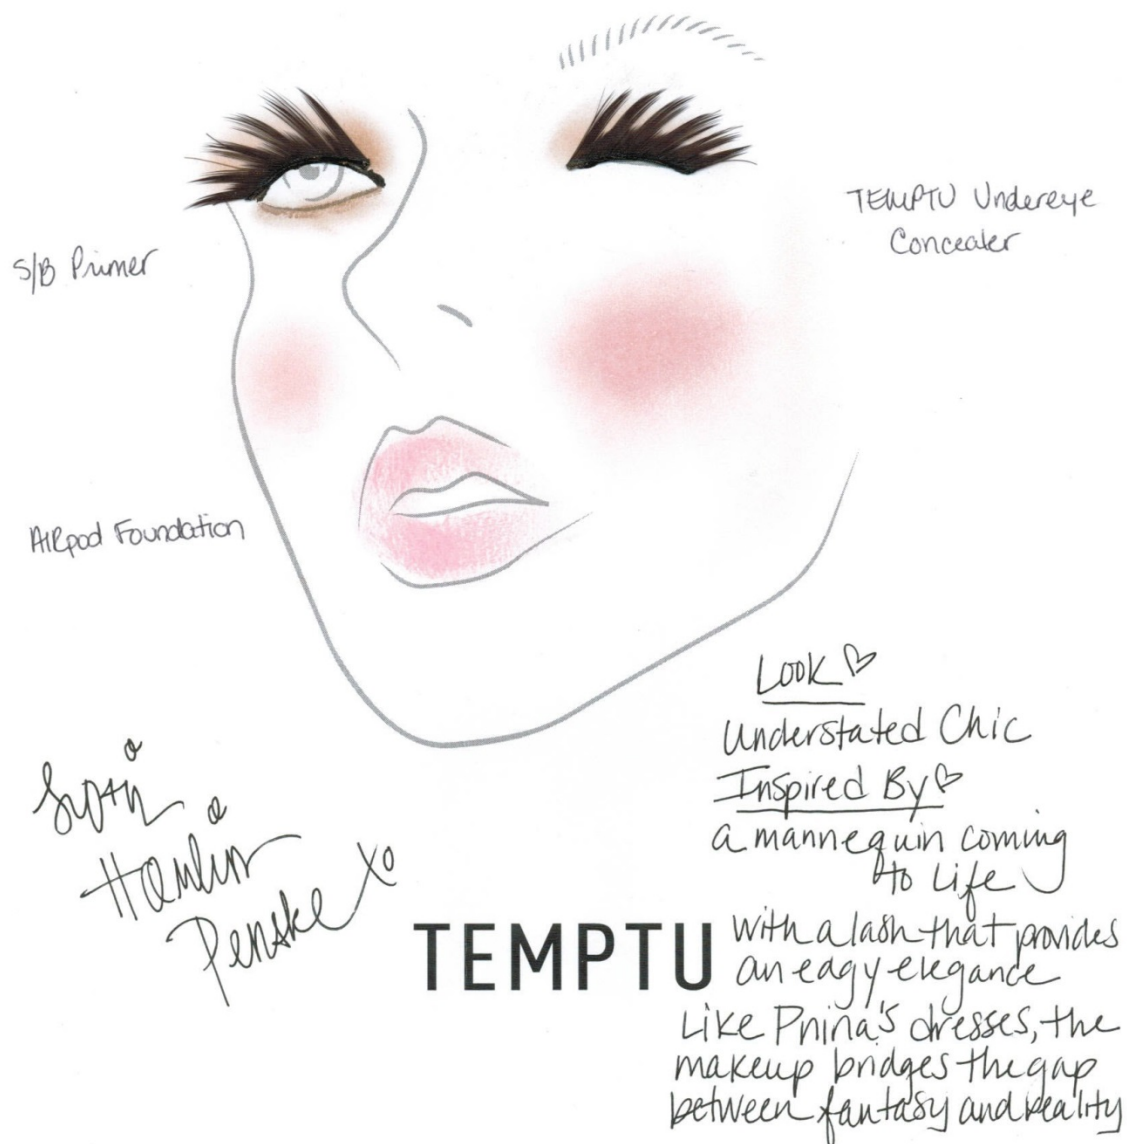 TEMPTU Undereye
Concealer
S/B Primer
AIRpod Foundation
Look
Understated Chic
Inspired By
a mannequin coming
to Life
with a lash that provides
an eagy elegance
Like Pnina's dresses, the
makeup bridges the gap
between fantasy and reality
Hamlin
Penske xo
TEMPTU